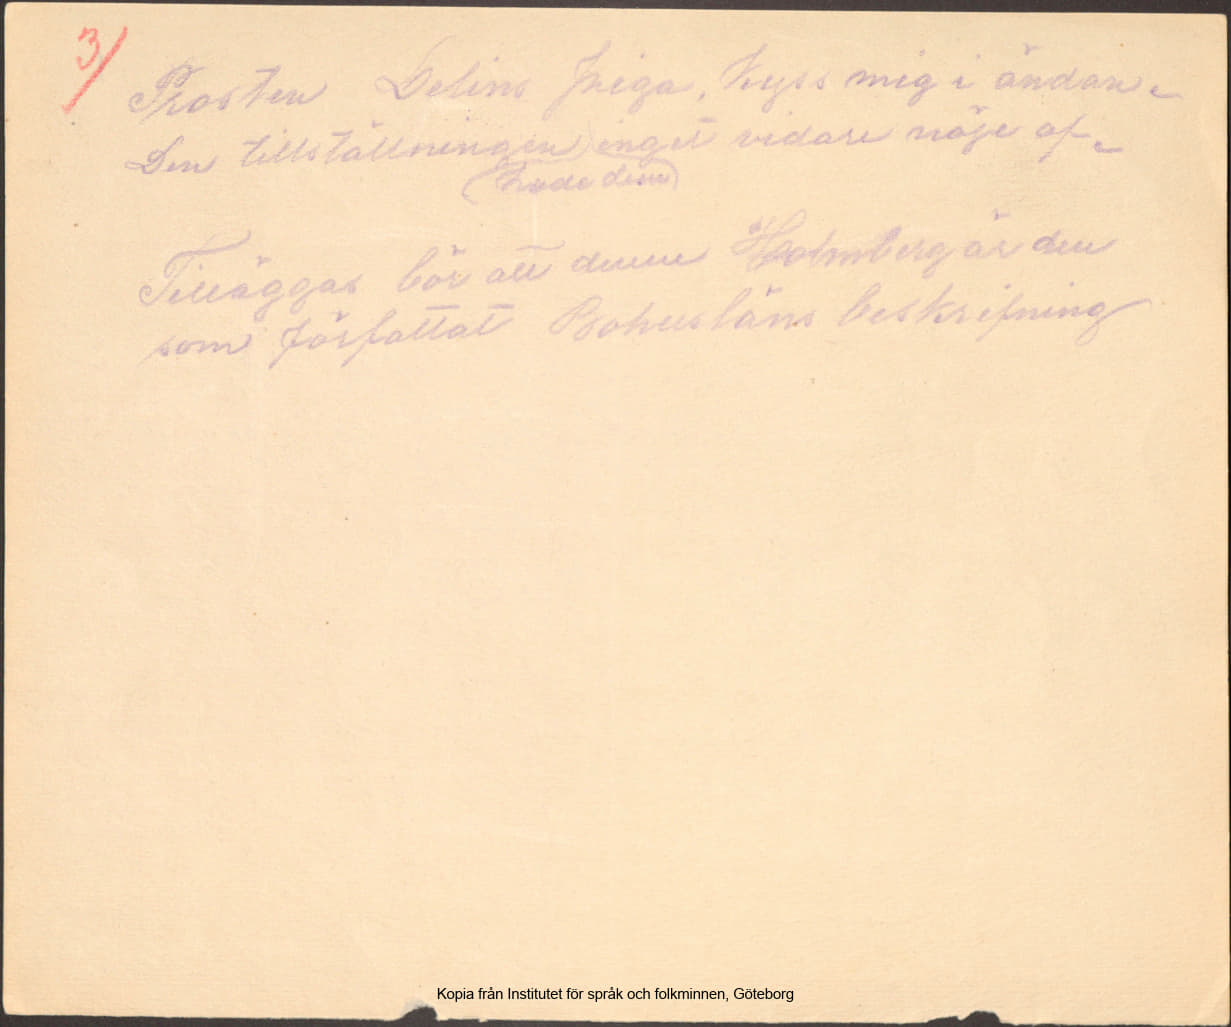 3/
Prosten Delins piga, kyss mig i ändan.
Den tillställningen inget vidare nöje af.
(hade dem)
Tilläggas bör att denne Holmberg är den
som författat Bohusläns beskrifning
Kopia från Institutet för språk och folkminnen, Göteborg